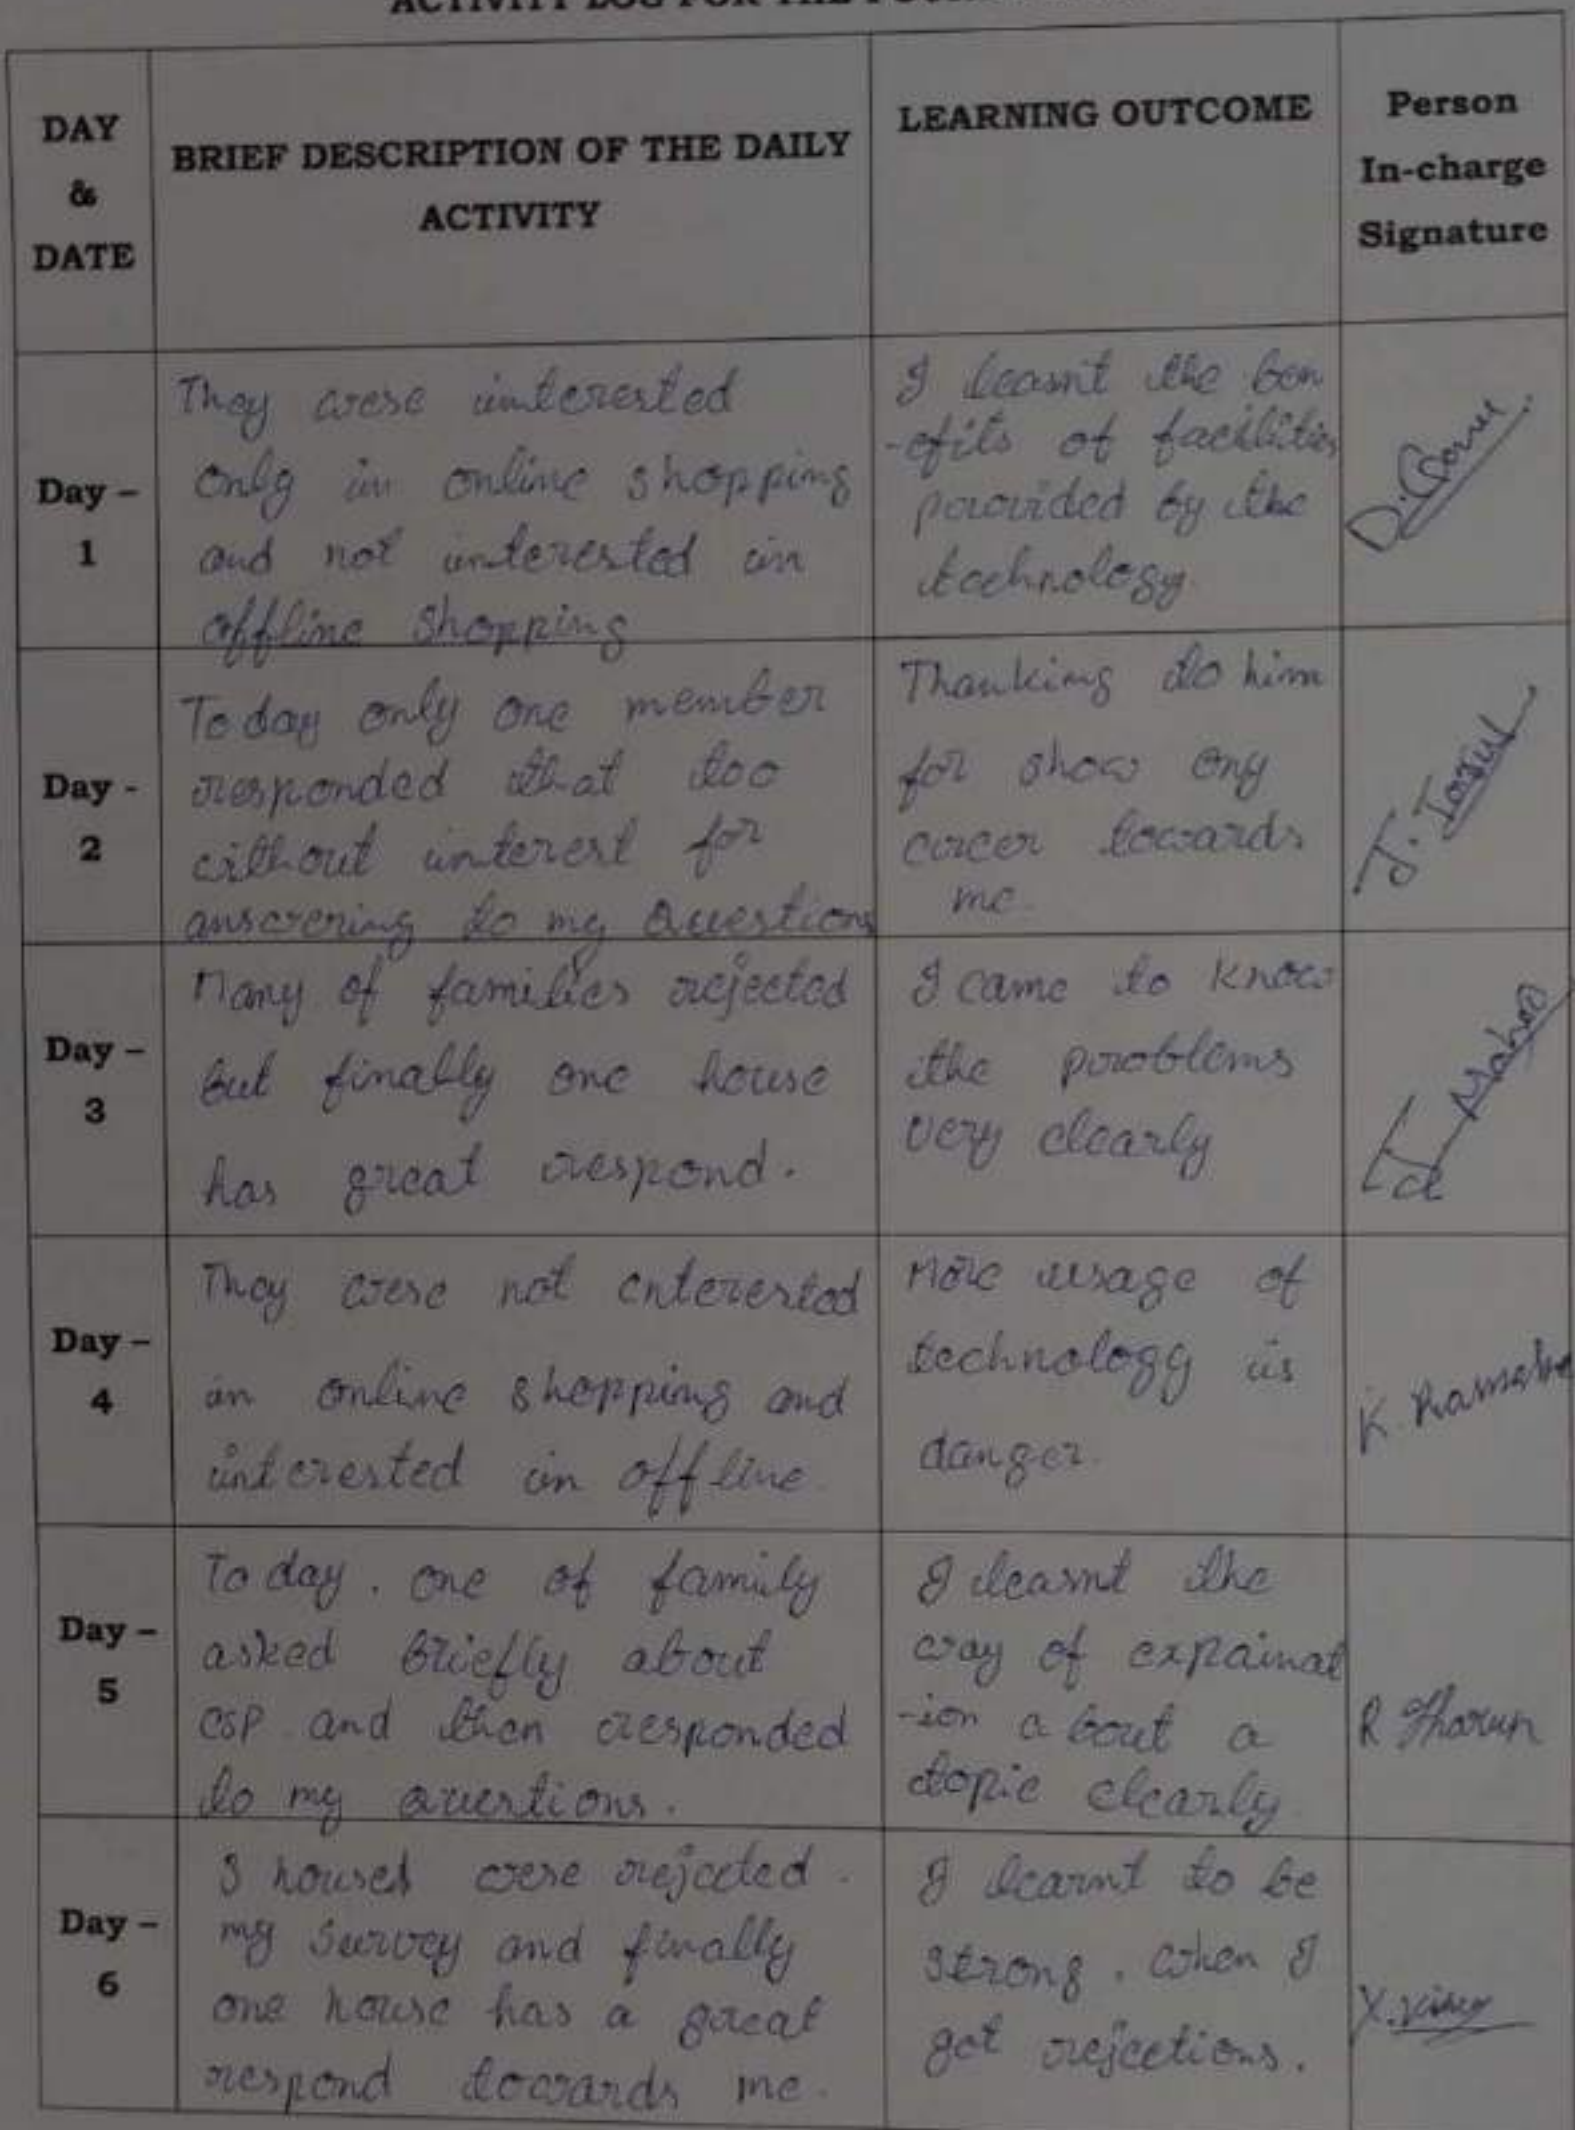 ACTIVITY LOG FOR THE
DAY
&
DATE
BRIEF DESCRIPTION OF THE DAILY
ACTIVITY
LEARNING OUTCOME
Person
In-charge
Signature
Day –
1
They were interested
only in online shopping
and not interested in
offline shopping
I learnt the ben
-efits of facilities
provided by the
technology.
Day -
2
Today only one member
responded that too
without interest for
answering to my Questions
Thanking to him
for show
towards
me.
J.
Day –
3
Many of families rejected
but finally one house
has great respond.
I came to know
the problems
very clearly
Day –
4
They were not enterested
in online shopping and
interested in offline.
More usage of
technology is
danger.
K.
Day –
5
Today. one of family
asked briefly about
CSP and then responded
to my questions.
I learnt the
way of expainat
-ion about a
topic clearly
R Tharun
Day –
6
3 houses were rejected.
my Survey and finally
one house has a great
respond towards me.
I learnt to be
strong. when I
got rejections.